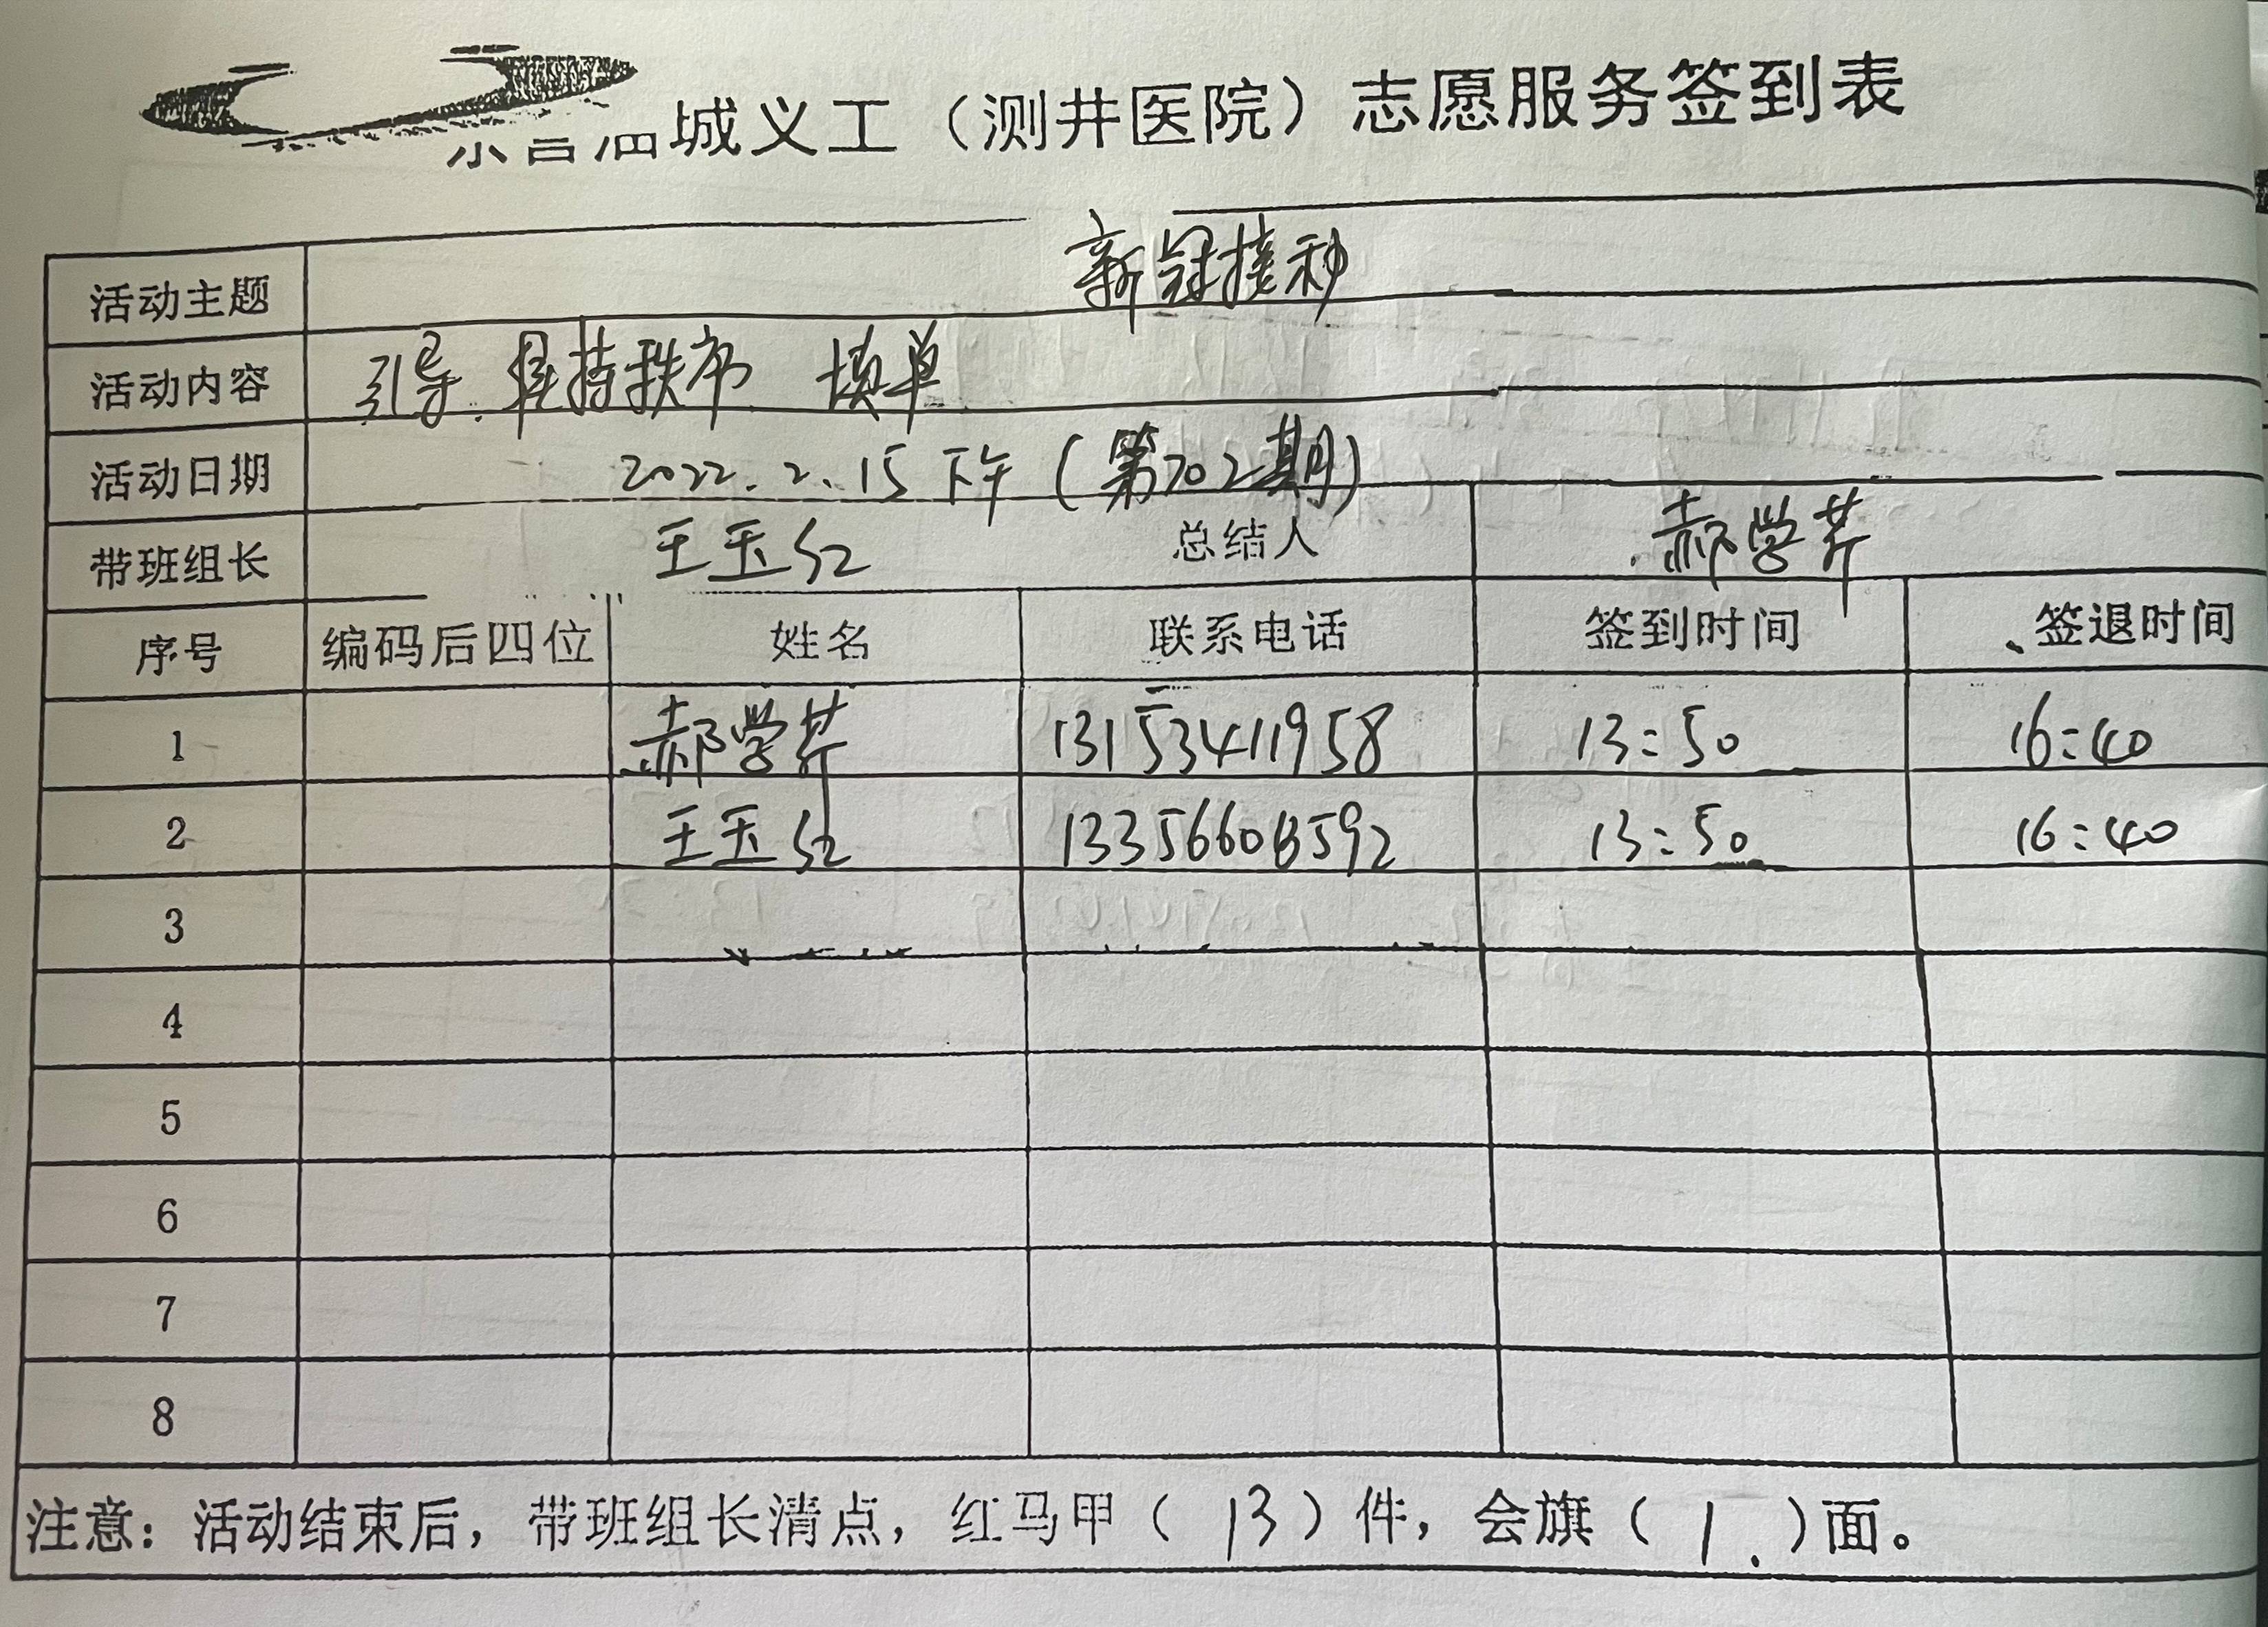 城义工（测井医院）志愿服务签到表
活动主题 新冠接种
活动内容 引导.维持秩序 填单
活动日期 2022.2.15下午(第702期)
带班组长 王玉红 总结人 郝学芹
序号 编码后四位 姓名 联系电话 签到时间 签退时间
1 郝学芹 13153411958 13:50 16:40
2 王玉红 13:50 16:40
3
4
5
6
7
8
注意：活动结束后，带班组长清点，红马甲（13）件，会旗（1.）面。